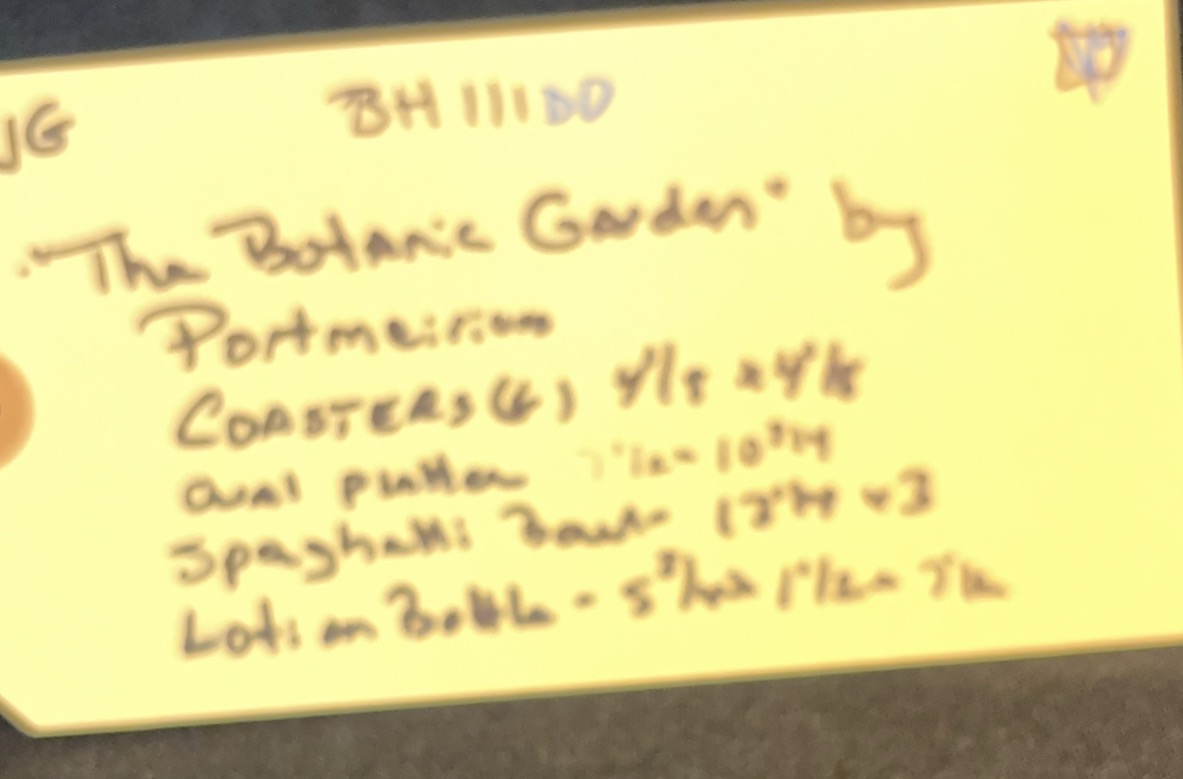 JG BH 111DD
"The Botanic Garden" by
Portmeirion
COASTERS (6) 4 1/8 x 4 1/8
oval platter 10 3/4
Spaghetti Bowl - x 3
Lotion Bottle - 5